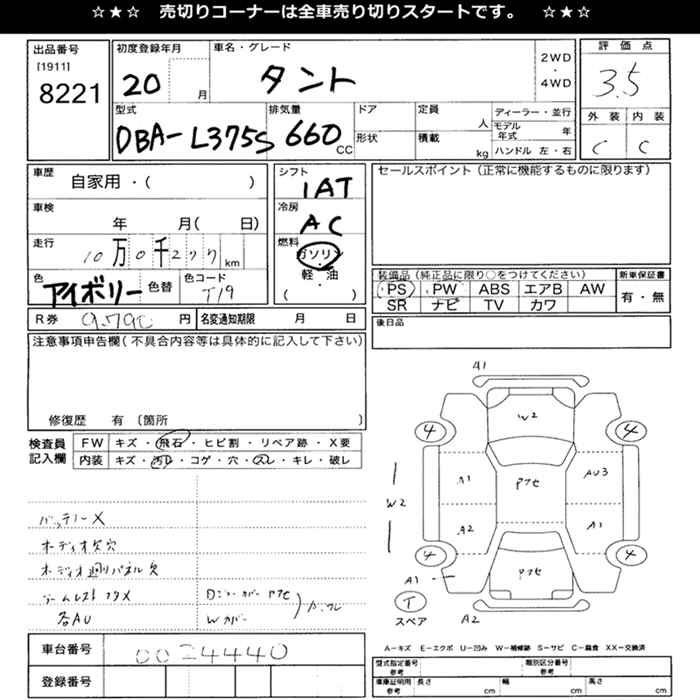 ☆★☆ 売切りコーナーは全車売り切りスタートです。 ☆★☆
出品番号
[1911]
8221
初度登録年月
20
月
車名・グレード
タント
2WD
・
4WD
評価点
3.5
外装 内装
C C
型式
DBA-L375S
排気量
660
CC
ドア
形状
定員
人
積載
kg
ディーラー・並行
モデル年式 年
ハンドル 左・右
車歴
自家用・( )
車検
年 月( 日)
走行
10万0千277km
色
アイボリー
色替
色コード
T19
シフト
IAT
冷房
AC
燃料
ガソリン
・
軽・油
( )
セールスポイント(正常に機能するものに限ります)
装備品(純正品に限り○をつけてください)
PS PW ABS エアB AW
SR ナビ TV カワ
新車保証書
有・無
R券 9,790 円
名変通知期限 月 日
後日品
注意事項申告欄(不具合内容等は具体的に記入して下さい)
修復歴 有〔箇所 〕
検査員
記入欄
FW キズ・飛石・ヒビ割・リペア跡・X要
内装 キズ・汚レ・コゲ・穴・スレ・キレ・破レ
バッテリーX
オーディオ欠穴
オーディオ廻りパネル欠
アームレストフタX
各AU
Wカバー
A1
W2
4 4
A1 アクセ AU3
W2
A2 A1
4 4
A1
アクセ
T
スペア
A2
A−キズ E−エクボ U−凹み W−補修跡 S−サビ C−腐食 XX−交換済
車台番号
0024440
登録番号
型式指定番号
参考
類別区分番号
参考
車庫証明用
参考
長さ cm
幅 cm
高さ cm